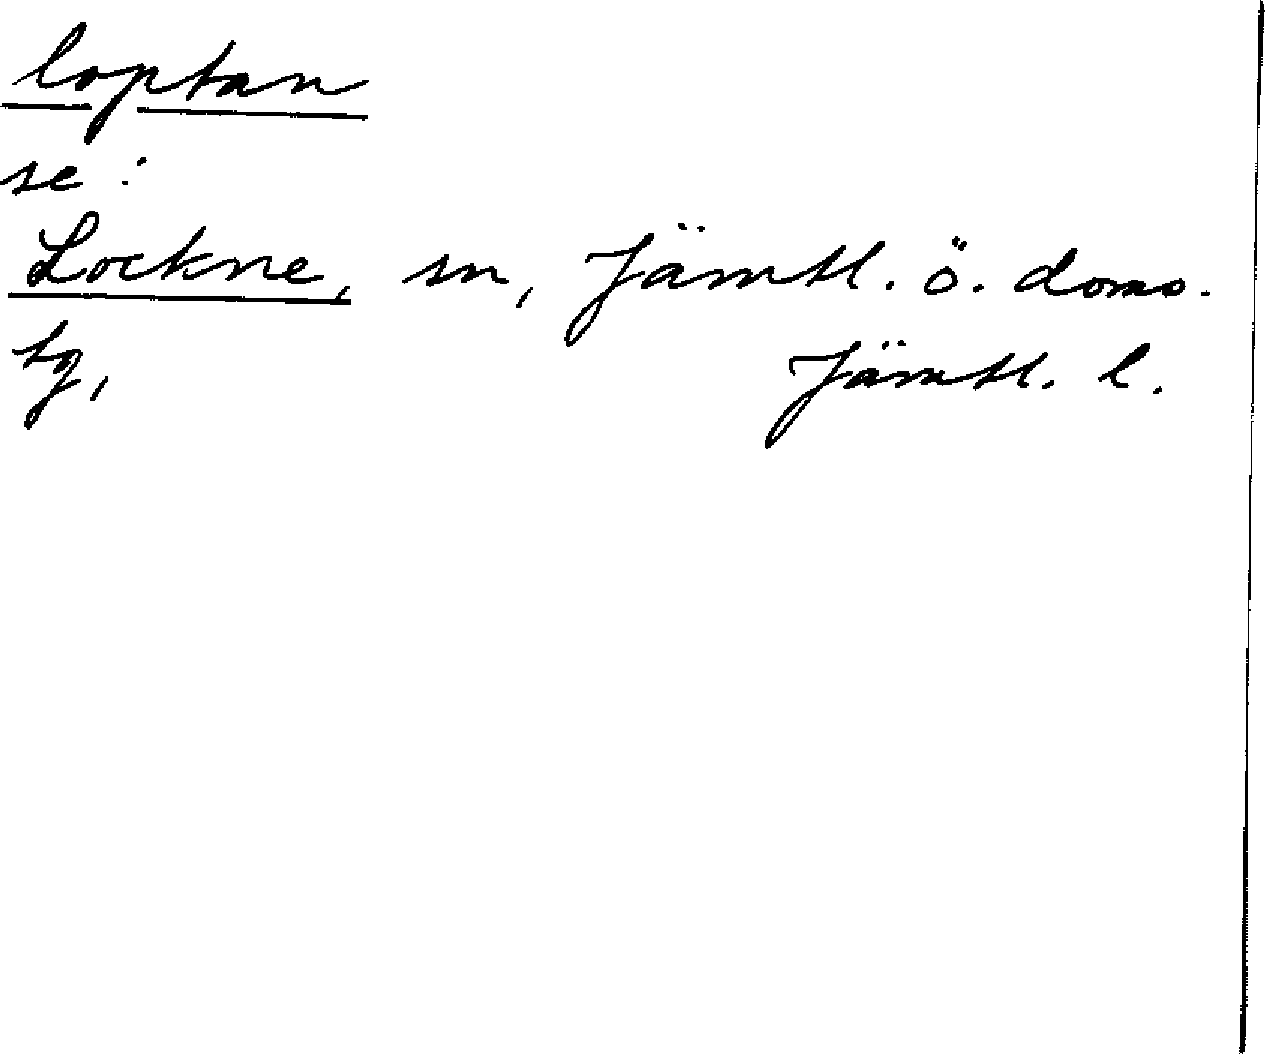 loptan
se :
Lockne, sn, Jämtl. ö. doms.
tg, Jämtl. l.